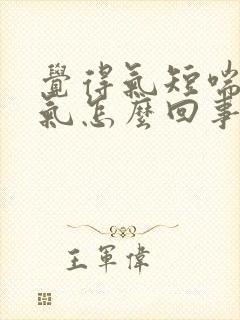 覺得氣短喘
氣怎麼回事
王軍偉